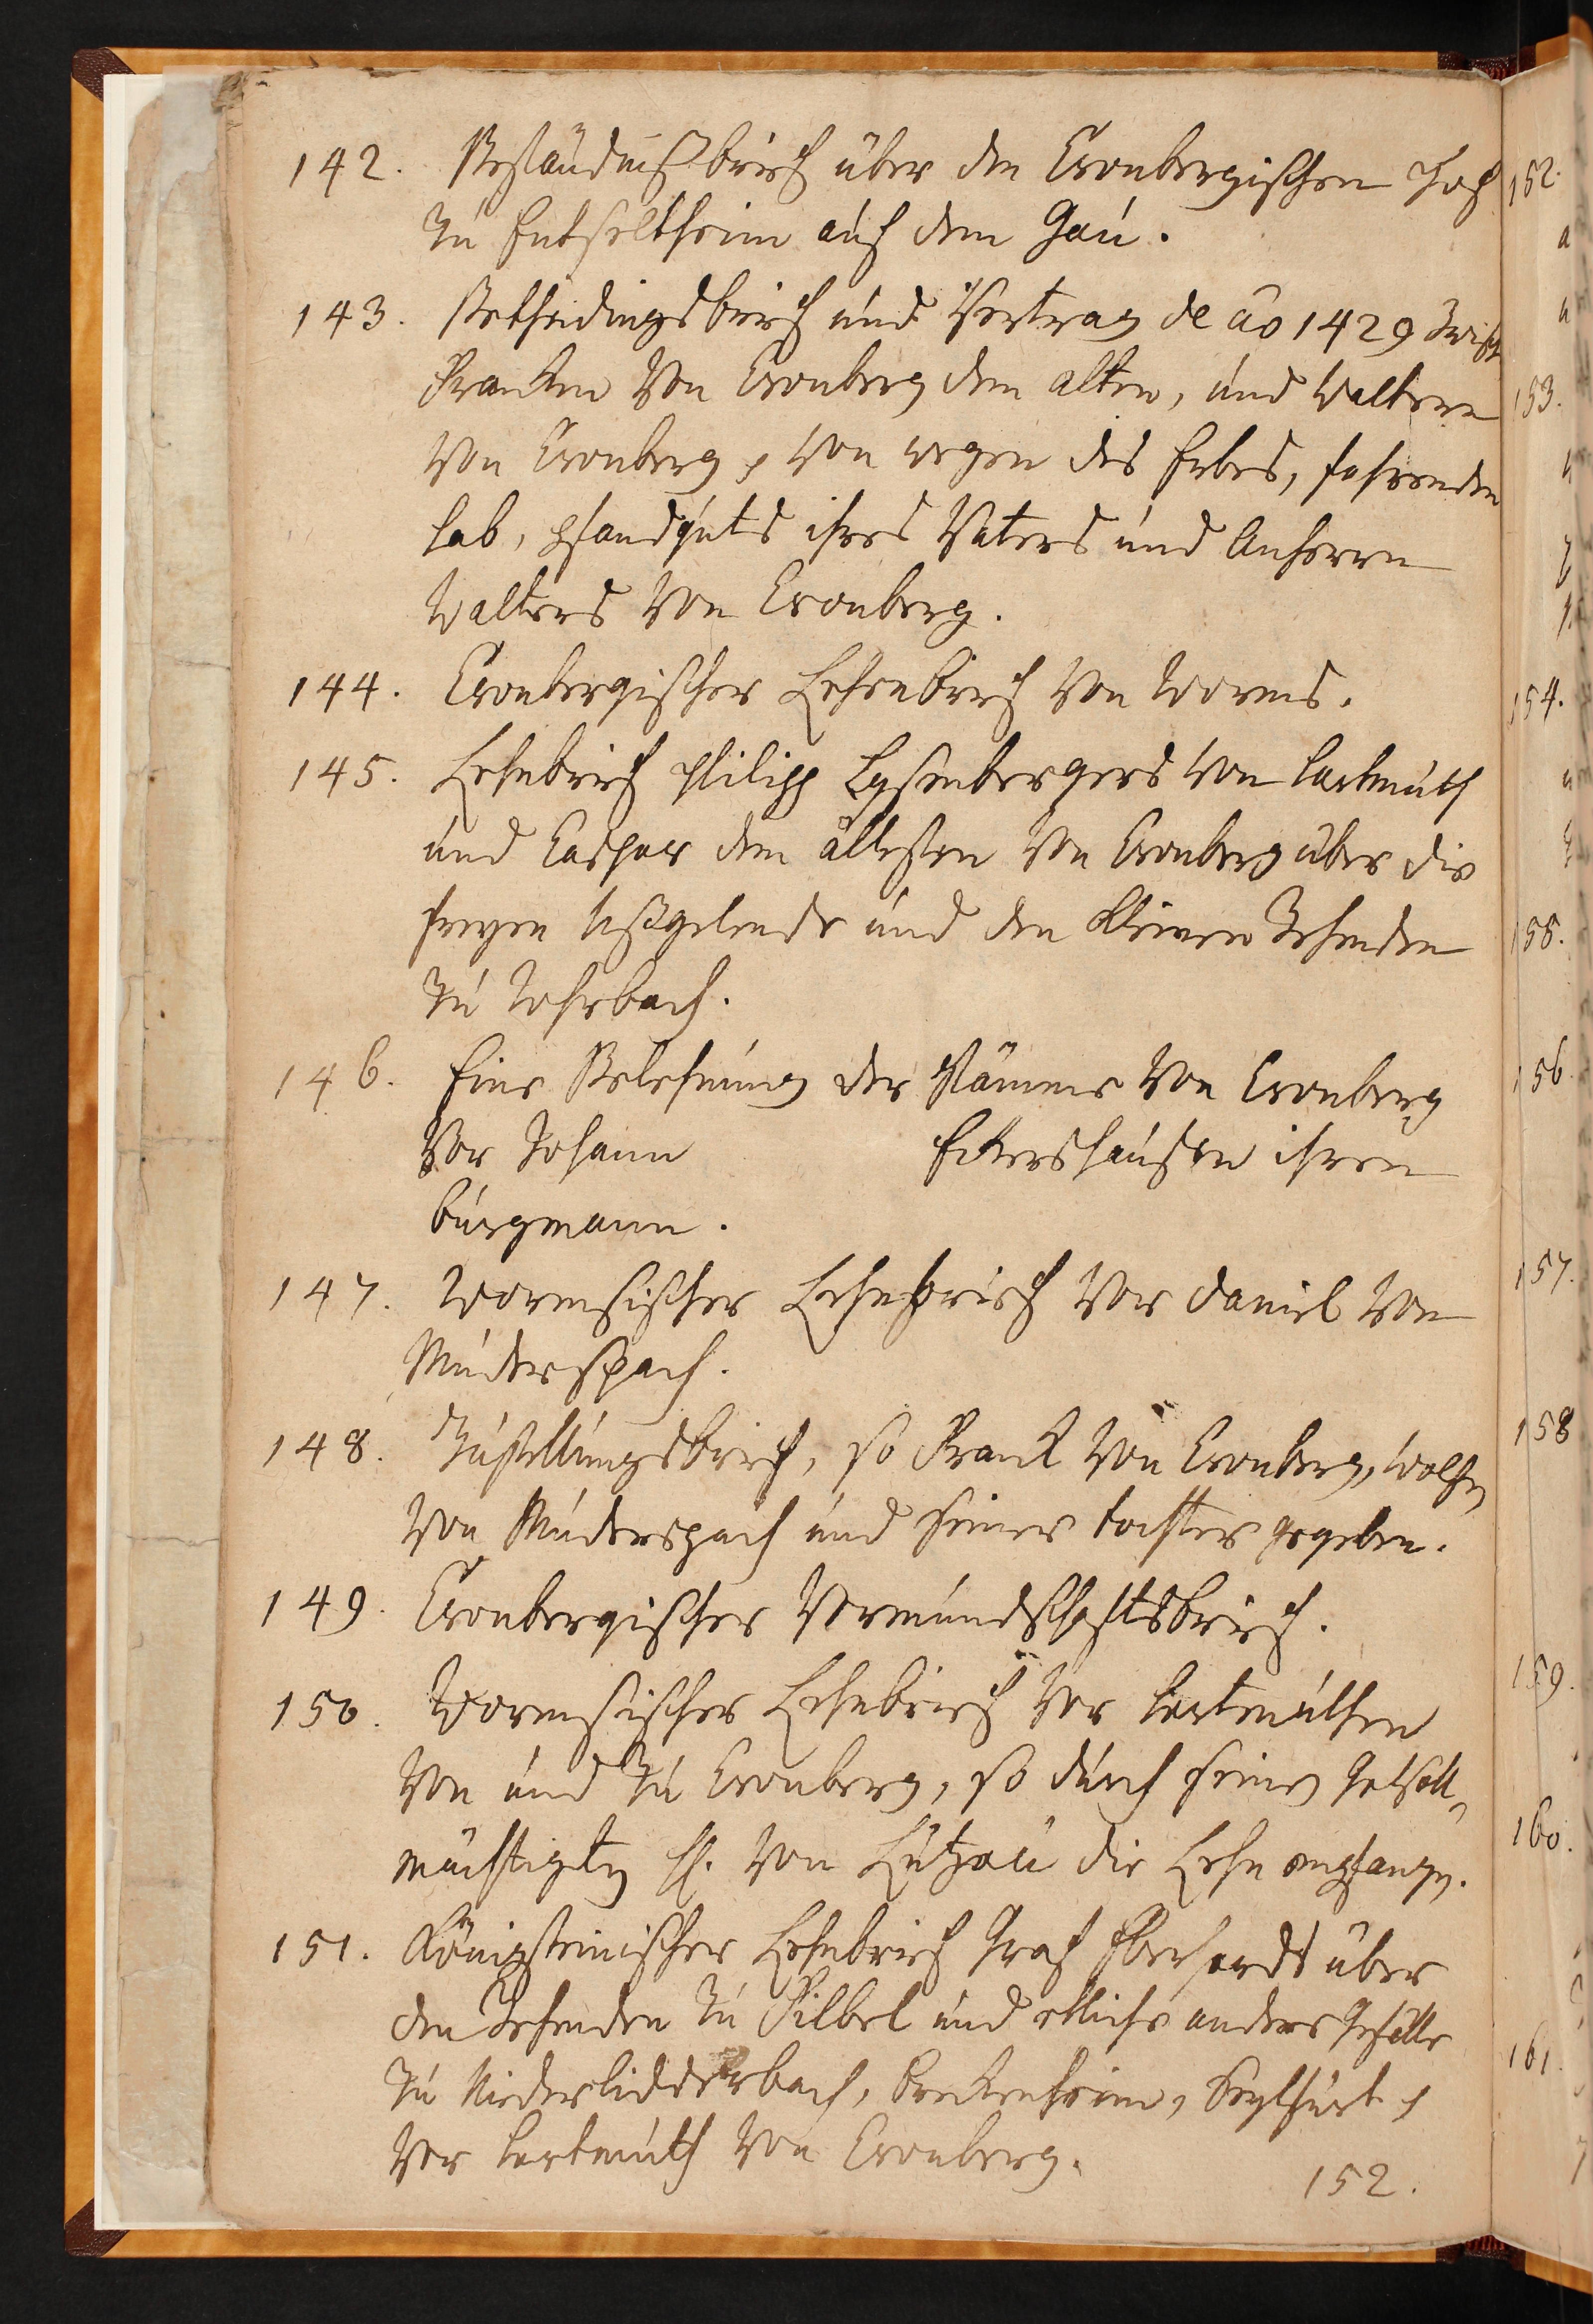 142. Beständnißbrief über den Cronbergischen Hof
zu Hutseltheim auf dem Gau.
143. Bethedingsbrief und Vertrag de ao 1429 zwisch
Francken von Cronberg dem alten, und Waltern
von Cronberg, von wegen des Erbes, fahrenden
hab, pfandguts ihres Vaters und Anherrn
Walters von Cronberg.
144. Cronbergischer Lehenbrief von Worms.
145. Lehnbrief Philipp Eysenbergers von Hartmuth
und Caspar dem ältesten von Cronberg über die
freyen und den kleinen Zehenden
zu Rohrbach.
146. Eine Belehnung der Stämme von Cronberg
vor Johann Eckershausen ihren
burgmann.
147. Wormsischer Lehnbrief vor Daniel von
Muderspach.
148. Zustellungsbrief, so Franck von Cronberg, Wolfen
von Muderspach und seiner tochter gegeben.
149. Cronbergischer Vormundschaftsbrief.
150. Wormsischer Lehnbrief vor Hartmuthen
von und zu Cronberg, so durch seinen Gevoll-
mächtigten H. von Lützau die Lehn empfangen.
151. Königsteinischer Lehnbrief Graf Eberhardts über
den Zehenden zu Vilbel und etliche andere Gefälle
zu Niederlidderbach, Breckenheim,
vor Hartmuth von Cronberg.
152.
152.
153.
154.
155.
156.
157.
158
159.
160.
161.